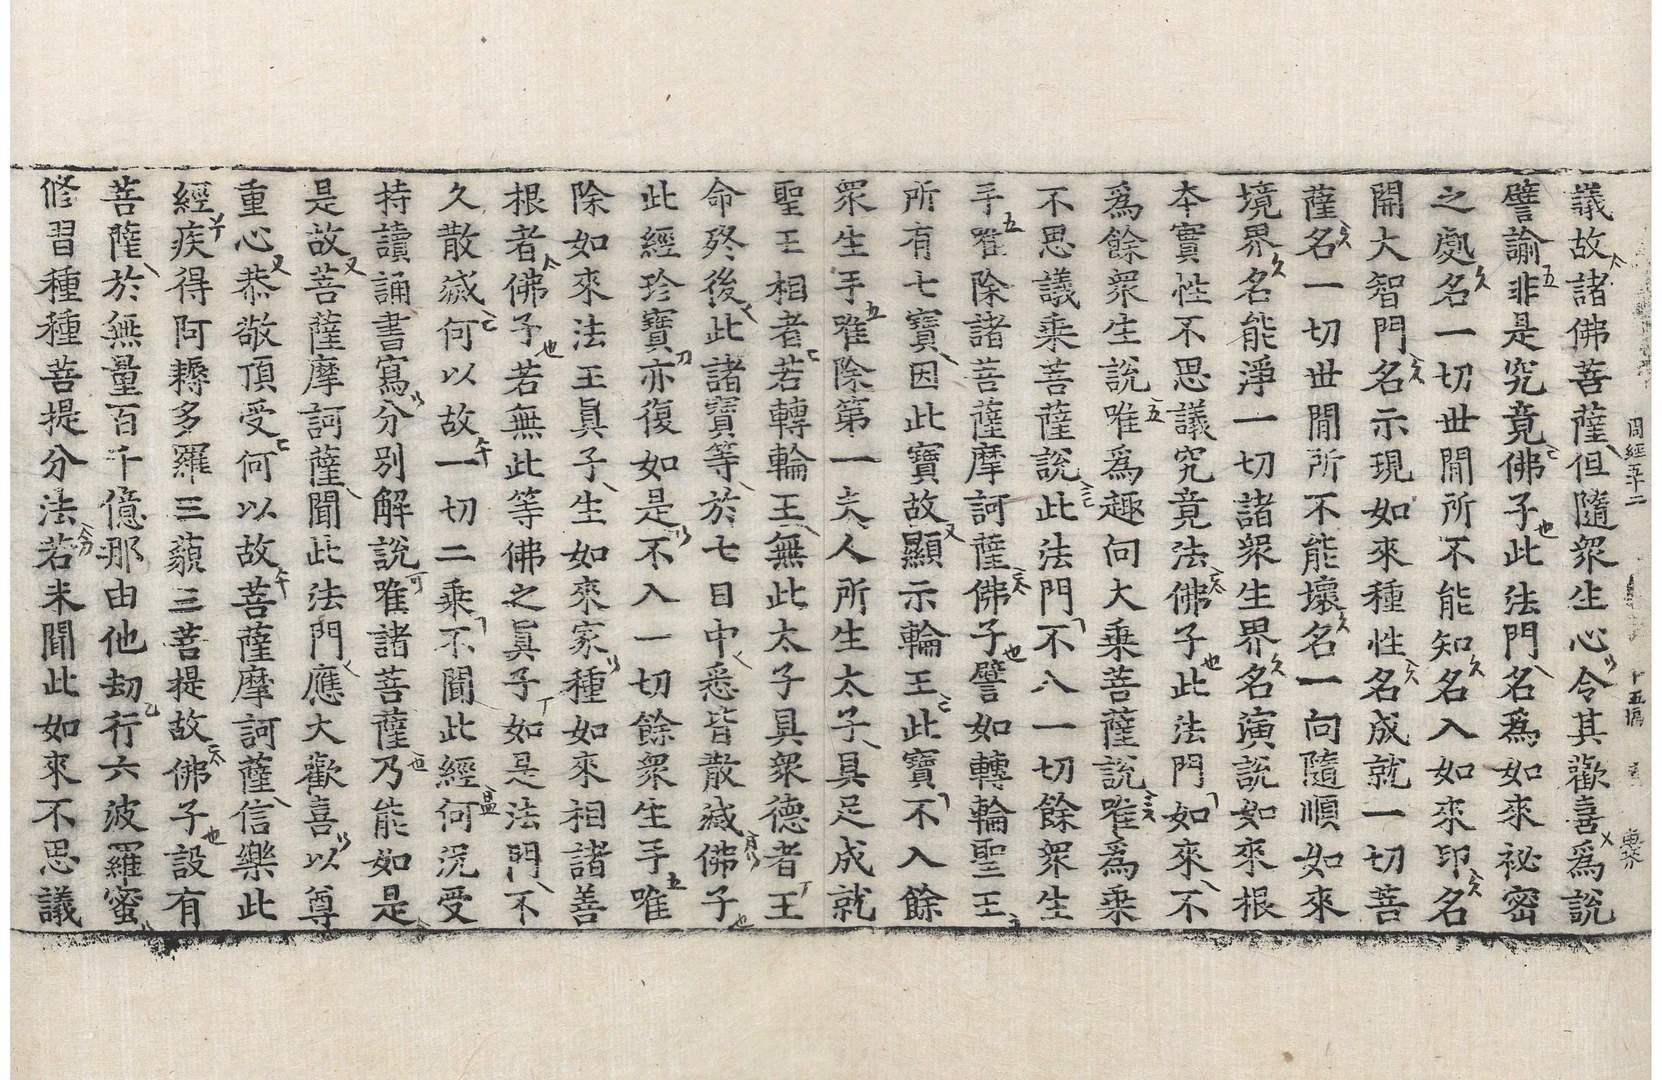 周經五十二 十五張
議故諸佛菩薩但隨衆生心令其歡喜爲說
譬諭非是究竟佛子此法門名爲如來祕密
之處名一切世閒所不能知名入如來印名
開大智門名示現如來種性名成就一切菩
薩名一切世閒所不能壞名一向隨順如來
境界名能淨一切諸衆生界名演說如來根
本實性不思議究竟法佛子此法門如來不
爲餘衆生說唯爲趣向大乘菩薩說唯爲乘
不思議乘菩薩說此法門不入一切餘衆生
手唯除諸菩薩摩訶薩佛子譬如轉輪聖王
所有七寶因此寶故顯示輪王此寶不入餘
衆生手唯除第一夫人所生太子具足成就
聖王相者若轉輪王無此太子具衆德者王
命終後此諸寶等於七日中悉皆散滅佛子
此經珍寶亦復如是不入一切餘衆生手唯
除如來法王眞子生如來家種如來相諸善
根者佛子若無此等佛之眞子如是法門不
久散滅何以故一切二乘不聞此經何況受
持讀誦書寫分別解說唯諸菩薩乃能如是
是故菩薩摩訶薩聞此法門應大歡喜以尊
重心恭敬頂受何以故菩薩摩訶薩信樂此
經疾得阿耨多羅三藐三菩提故佛子設有
菩薩於無量百千億那由他劫行六波羅蜜
修習種種菩提分法若未聞此如來不思議